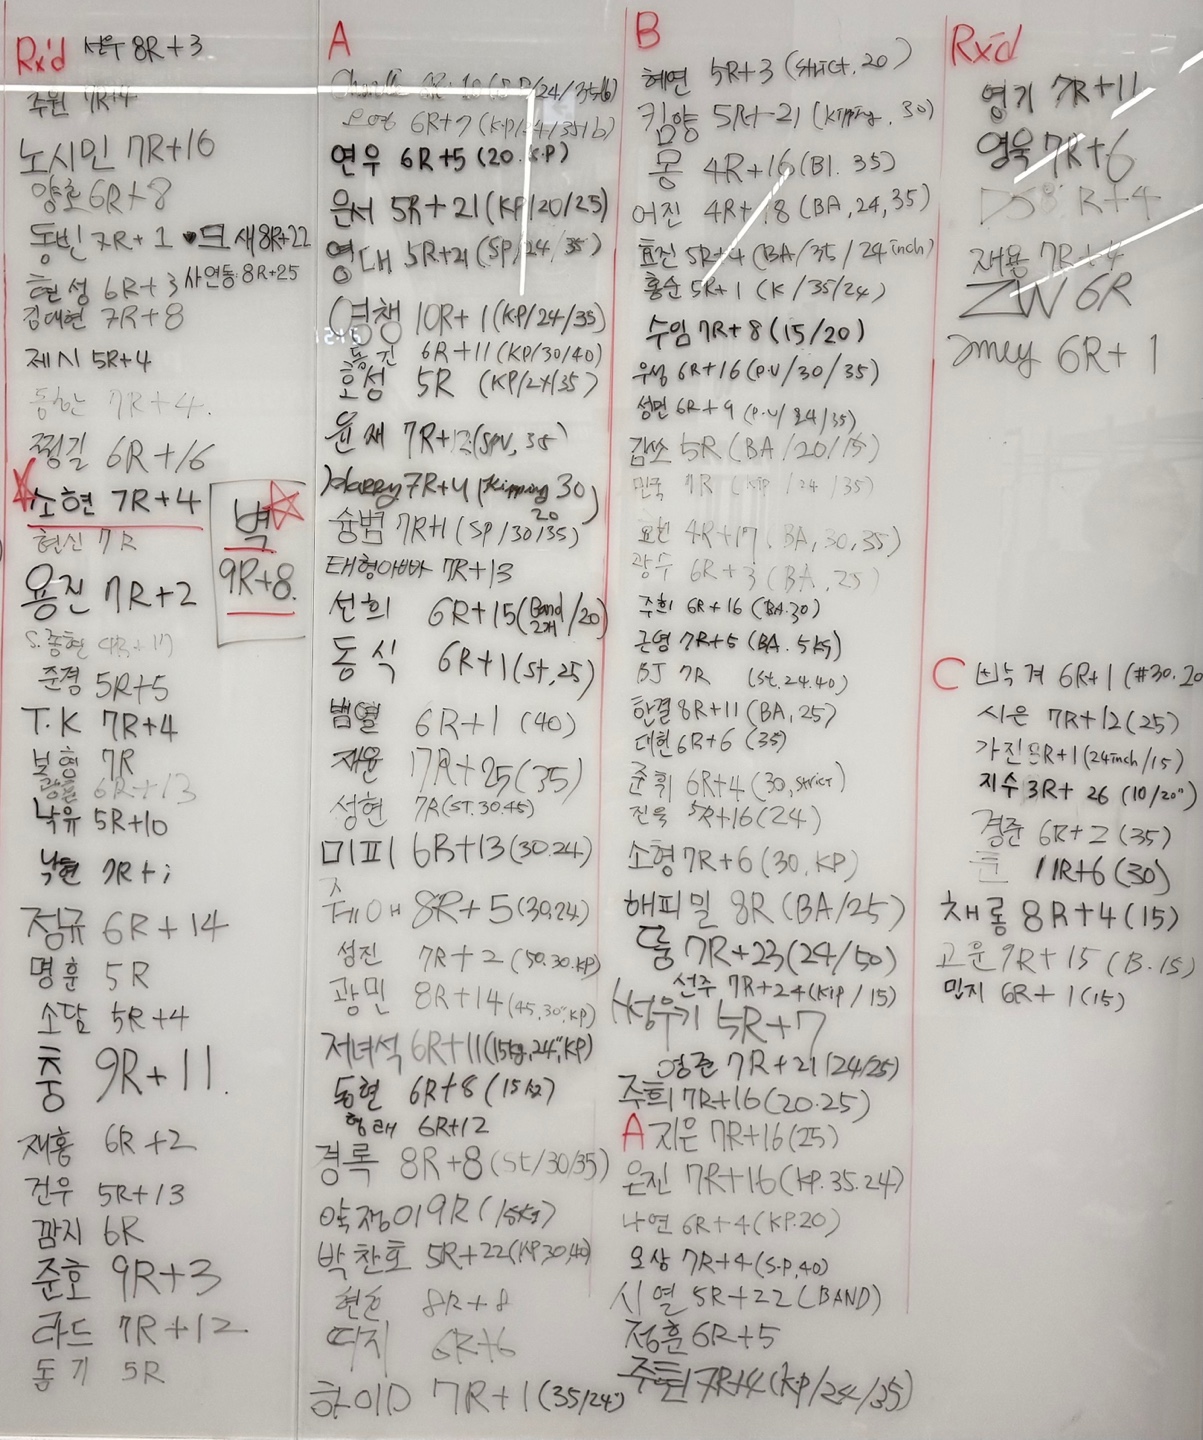 Rx'd 선우 8R+3
주원 7R+4
노시민 7R+16
양호 6R+8
동빈 7R+1 새 8R+22
현성 6R+3 사연동 8R+25
김대현 7R+8
제시 5R+4
동한 7R+4.
찡길 6R+16
소현 7R+4
현신 7R
벽
9R+8.
용진 7R+2
S.종현
준경 5R+5
T.K 7R+4
보형 7R
6R+13
낙유 5R+10
낙현 7R+
정규 6R+14
명훈 5R
소담 5R+4
충 9R+11.
재홍 6R+2
건우 5R+13
깜지 6R
준호 9R+3
라드 7R+12
동기 5R
A
6R+7 (KP/24/35lb)
연우 6R+5 (20. S.P)
윤서 5R+21 (KP/20/25)
영대 5R+21 (SP/24/35)
영챙 10R+1 (KP/24/35)
동진 6R+11 (KP/30/40)
호성 5R (KP/24/35)
윤재 7R+
Harry 7R+4 (Kipping 30)
승범 7R+1 (SP/30/35) 20
태형아빠 7R+13
선희 6R+15 (Band 2개/20)
동식 6R+1 (St, 25)
범열 6R+1 (40)
재윤 17R+25 (35)
성현 7R (ST. 30. 45)
미피 6R+13 (30.24)
쥬니애 8R+5 (30,24)
성진 7R+2 (50.30.KP)
광민 8R+14 (45, 30", KP)
저녀석 6R+11 (15kg, 24", KP)
동현 6R+8 (15
형래 6R+12
경록 8R+8 (St/30/35)
악정이 9R (15kg)
박찬호 5R+22 (KP 30,40)
현순 8R+8
딱지 6R+6
하이D 7R+1 (35/24")
B
혜연 5R+3 (Strict, 20)
킴양 5R+21 (Kipping, 30)
몽 4R+16 (Bl. 35)
어진 4R+18 (BA, 24, 35)
효진 5R+4 (BA/35/24inch)
홍순 5R+1 (K/35/24)
수임 7R+8 (15/20)
우성 6R+16 (P.U/30/35)
성민 6R+9 (P.U/24/35)
갑쏘 5R (BA/20/15)
민국 7R (KIP/24/35)
효빈 4R+17 (BA, 30, 35)
광수 6R+3 (BA, 25)
주희 6R+16 (BA.30)
근영 7R+5 (BA. 5kg)
BJ 7R (St. 24.40)
한결 8R+11 (BA, 25)
대헌 6R+6 (35)
준휘 6R+4 (30, strict)
진욱 5R+16 (24)
소형 7R+6 (30, KP)
해피밀 8R (BA/25)
뚱 7R+23 (24/50)
선주 7R+24 (KIP/15)
성우기 5R+7
영준 7R+21 (24/25)
주희 7R+16 (20.25)
A 지은 7R+16 (25)
은진 7R+16 (KP.35.24)
나연 6R+4 (KP.20)
오상 7R+4 (S.P, 40)
시열 5R+22 (BAND)
정훈 6R+5
주현 7R+4 (KP/24/35)
Rx'd
영기 7R+11
영욱 7R+6
DS 8R+4
재용 7R+4
ZW 6R
Jmey 6R+1
C 6R+1 (#30.20
시은 7R+12 (25)
가진 R+1 (24inch/15)
지수 3R+26 (10/20")
경준 6R+2 (35)
11R+6 (30)
채롱 8R+4 (15)
고운 9R+15 (B.15)
밍지 6R+1 (15)